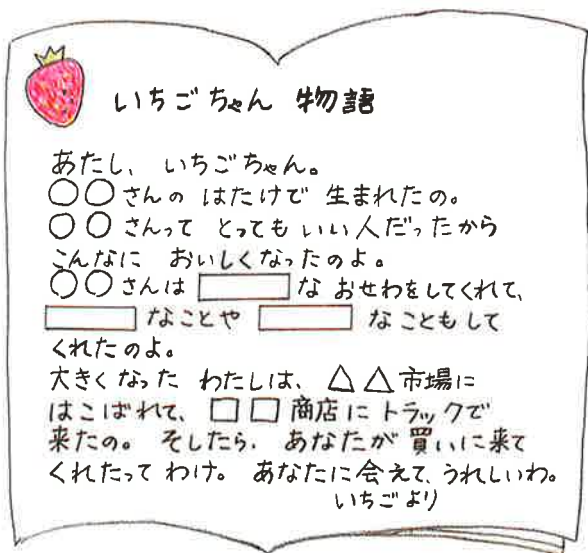 いちごちゃん 物語
あたし、いちごちゃん。
○○さんの はたけで 生まれたの。
○○さんって とっても いい人だったから
こんなに おいしくなったのよ。
○○さんは □ な おせわをしてくれて、
□ なことや □ なこともして
くれたのよ。
大きくなった わたしは、△△市場に
はこばれて、□□商店に トラックで
来たの。そしたら、あなたが 買いに来て
くれたって わけ。あなたに会えて、うれしいわ。
いちごより